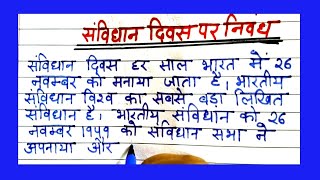 संविधान दिवस पर निबंध
संविधान दिवस हर साल भारत में 26
नवम्बर को मनाया जाता है। भारतीय
संविधान विश्व का सबसे बड़ा लिखित
संविधान है। भारतीय संविधान को 26
नवम्बर १९५१ को संविधान सभा ने
अपनाया और